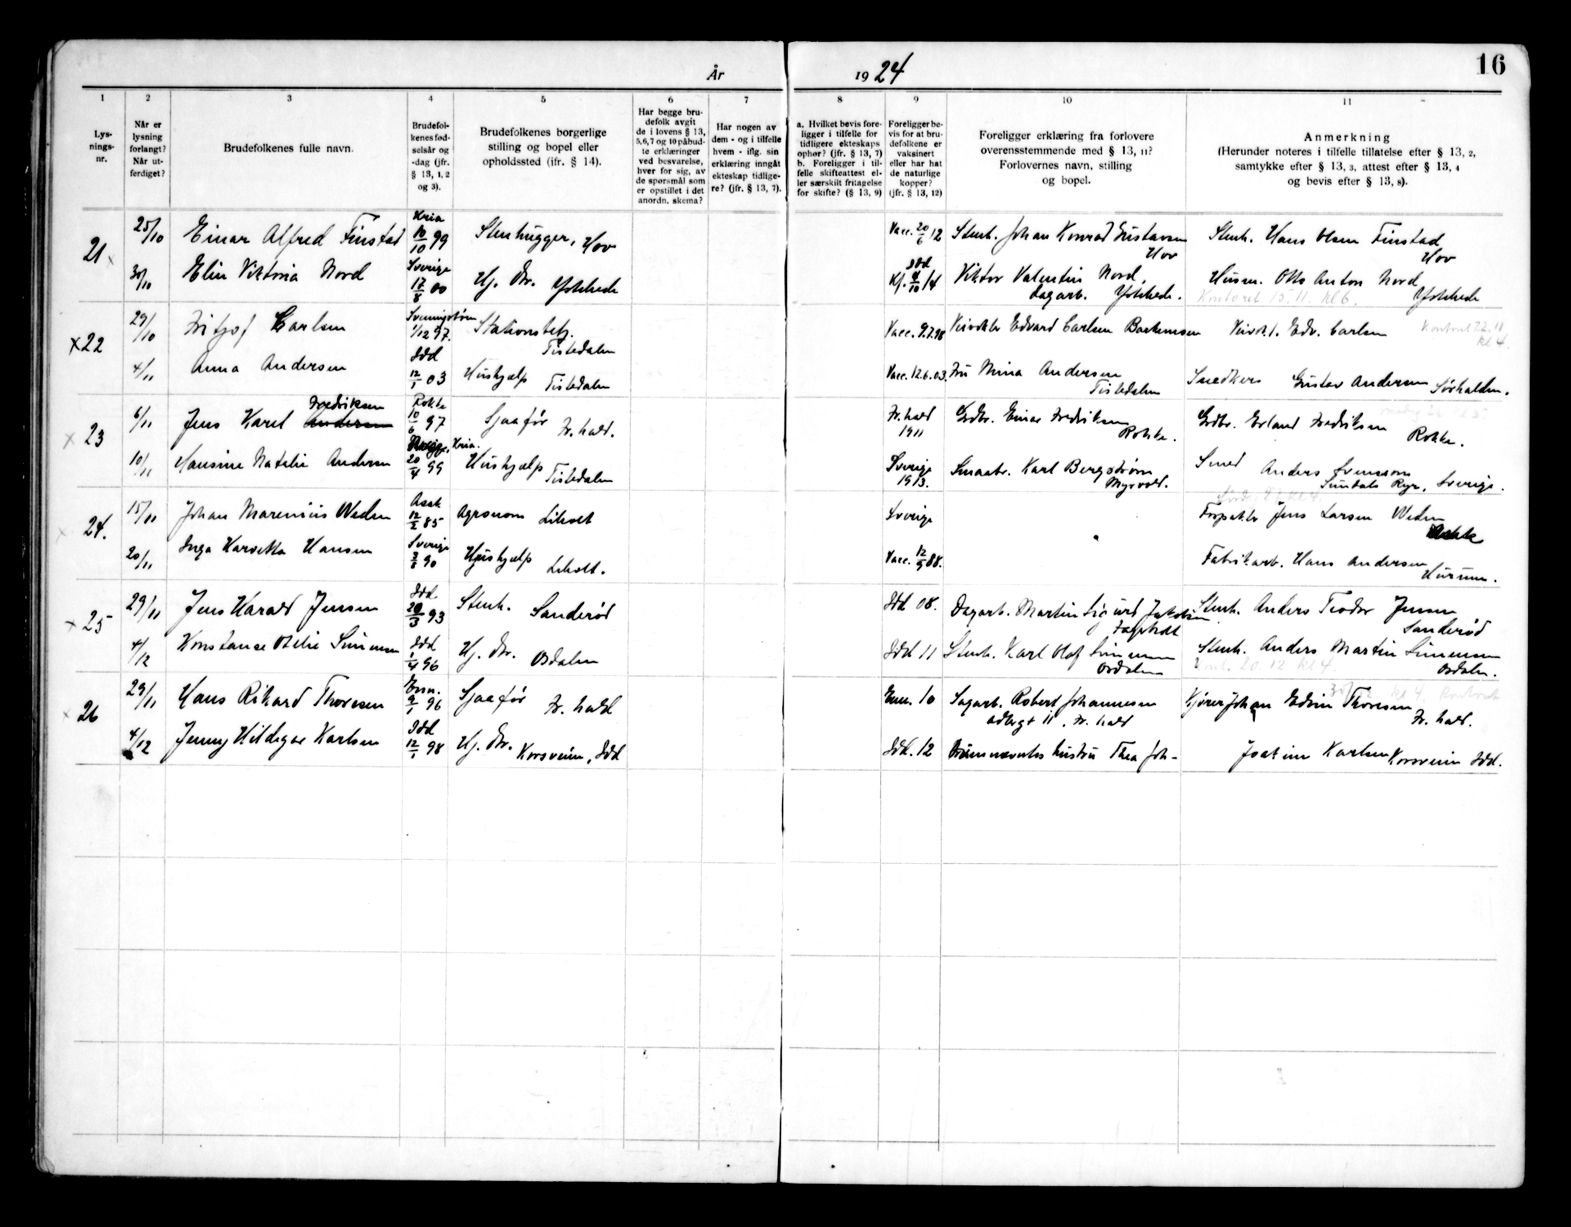 År 1924
16
1 2 3 4 5 6 7 8 9 10 11
Lysningsnr.
Når er lysning forlangt? Når utferdiget?
Brudefolkenes fulle navn.
Brudefolkenes fødselsår og -dag (jfr. § 13, 1, 2 og 3).
Brudefolkenes borgerlige stilling og bopel eller opholdssted (ifr. § 14).
Har begge brudefolk avgit de i lovens § 13, 5, 6, 7 og 10 påbudte erklæringer ved besvarelse, hver for sig, av de spørsmål som er opstillet i det anordn. skema?
Har nogen av dem - og i tilfelle hvem - iflg. sin erklæring inngått ekteskap tidligere? (jfr. § 13, 7).
a. Hvilket bevis foreligger i tilfelle for tidligere ekteskaps ophør? (jfr. § 13, 7) b. Foreligger i tilfelle skifteattest eller særskilt fritagelse for skifte? (§ 13, 9)
Foreligger bevis for at brudefolkene er vaksinert eller har hat de naturlige kopper? (jfr. § 13, 12)
Foreligger erklæring fra forlovere overensstemmende med § 13, 11? Forlovernes navn, stilling og bopel.
Anmerkning (Herunder noteres i tilfelle tillatelse efter § 13, 2, samtykke efter § 13, 3, attest efter § 13, 4 og bevis efter § 13, 8).
21 25/10 Einar Alfred Finstad Kria 10/10 99 Stenhugger, Hov Vacc. 20/6 12 Stenh. Johan Konrad Gustavsen Hov Stenh. Hans Olsen Finstad Hov
30/10 Elin Viktoria Nord Sverige 17/8 00 Hj. Dr. Idd 4/10 14 Viktor Valentin Nord, Dagarb. Husm. Otto Anton Nord
Kontoret 15.11. kl 6.
x22 29/10 Fritjof Carlsen 1/12 97. Stationsbetj. Tistedalen Vacc. 9.7.98 Edvard Carlsen Edv. Carlsen
Kontoret 22.11 kl 4.
4/11 Anna Andersen Idd 12/1 03 Hushjælp Tistedalen Vacc. 12.6.03. Fru Mina Andersen Tistedalen Snedkers Gustav Andersen Sørhalden.
x 23 6/11 Jens Karel Fredriksen Andersen Rokke 10/6 97 Sjaafør Fr.hald. Fr. hald 1911 Grdbr. Einar Fredriksen Rokke. Grdbr. Erland Fredriksen Rokke.
10/11 Hansine Natalie Andersen Kria. 20/4 99 Hushjælp Tistedalen Sverige 1913. Smaabr. Karl Bergstrøm Myrvold. Smed Anders Svensson Sverige.
x 24. 15/11 Johan Marenius Weden Aask 12/2 85 Agronom Liholt Sverige Jens Larsen Weden Aask
20/11 Inga Harvikka Hansen Sverige 90 Hushjælp Liholt. Vacc. 12/9 88. Fabrikarb. Hans Andersen Hurum.
x 25 29/11 Jens Harald Jensen Idd. 20/3 93 Stenh. Sanderød Idd 08. Dagarb. Martin Sigurd Jakobsen Stenh. Anders Teodor Jensen Sanderød
4/12 Konstanse Otilie Simensen Idd 96 Hj. Dr. Osdalen Idd 11 Stenh. Karl Olof Simensen Osdalen Stenh. Anders Martin Simensen Osdalen.
20.12 kl 4
x 26 29/11 Hans Rikard Thoresen 9/1 96 Sjaafør Fr. hald 10 Dagarb. Robert Johannesen Fr. hald Kjører Johan Edvin Thoresen Fr. hald.
kl 4. Kontoret
4/12 Jenny Hildegar Karlsen Idd 12/1 98 Hj. Dr. Korsveien, Idd Idd. 12 hustru Thea Joh- Joakim Karlsen Korsveien Idd.